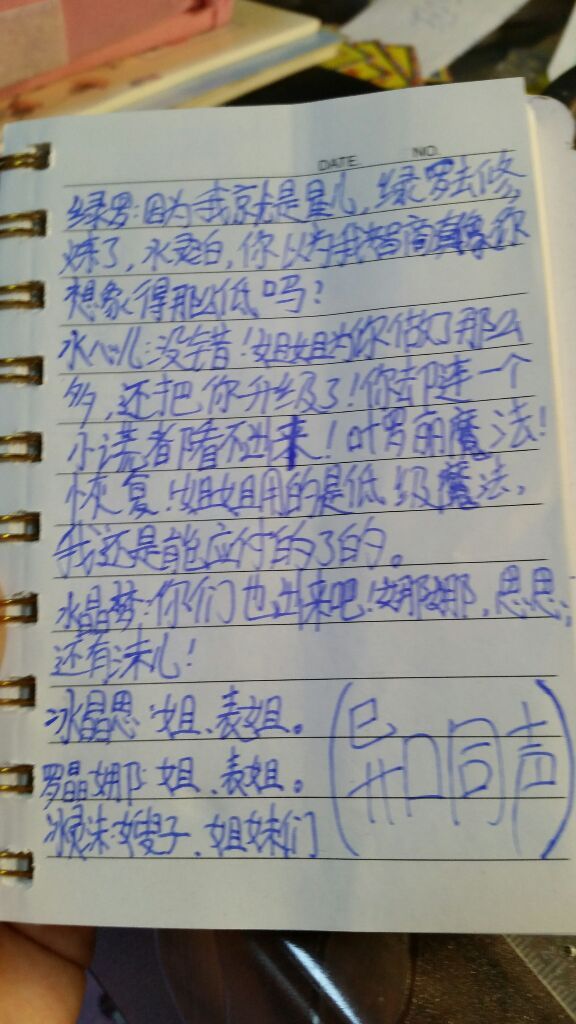 DATE NO.
绿罗:因为我就是星儿,绿罗去修
炼了,水灵白,你以为我智商真像你
想象得那么低吗?
水心儿:没错!姐姐为你做了那么
多,还把你升级了!你却连一个
小谎都看不出来!叶罗丽魔法!
恢复!姐姐用的是低级魔法,
我还是能应付的了的。
水晶梦:你们也出来吧!娜娜,思思,
还有沫儿!
冰晶思:姐、表姐。
罗晶娜:姐、表姐。
冰灵沫:嫂子、姐妹们
(异口同声)